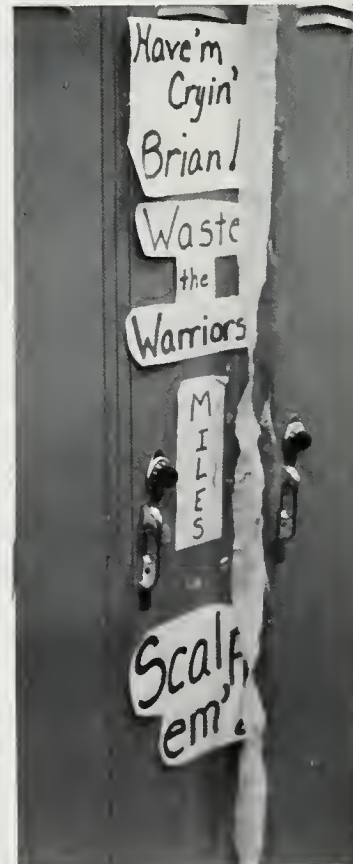 Have'm
Cryin'
Brian!
Waste
the
Warriors
MILES
Scalp
em'!